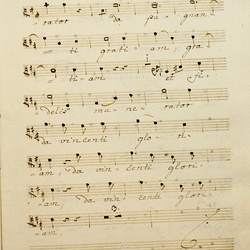 rator da pugnan
ti grati am, gra
ti am et fi
delis mune rator
da vincenti glo ri
am, da vincenti glori
am, da vincenti glori
am.